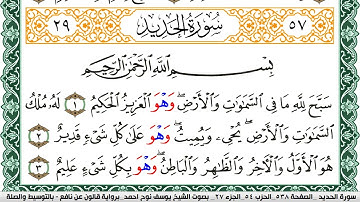 ٢٩ سُورَةُ الْحَدِيدِ ٥٧
بِسْمِ اللَّهِ الرَّحْمَٰنِ الرَّحِيمِ
سَبَّحَ لِلَّهِ مَا فِي السَّمَٰوَٰتِ وَالْأَرْضِ وَهْوَ الْعَزِيزُ الْحَكِيمُ ١ لَهُ مُلْكُ
السَّمَٰوَٰتِ وَالْأَرْضِ يُحْيِۦ وَيُمِيتُ وَهْوَ عَلَىٰ كُلِّ شَيْءٍ قَدِيرٌ ٢
هُوَ الْأَوَّلُ وَالْآخِرُ وَالظَّٰهِرُ وَالْبَاطِنُ وَهْوَ بِكُلِّ شَيْءٍ عَلِيمٌ ٣
سورة الحديد _ الصفحة ٥٣٨_ الحزب ٥٤_ الجزء ٢٧ _ بصوت الشيخ يوسف نوح احمد _ برواية قالون عن نافع - بالتوسيط والصلة